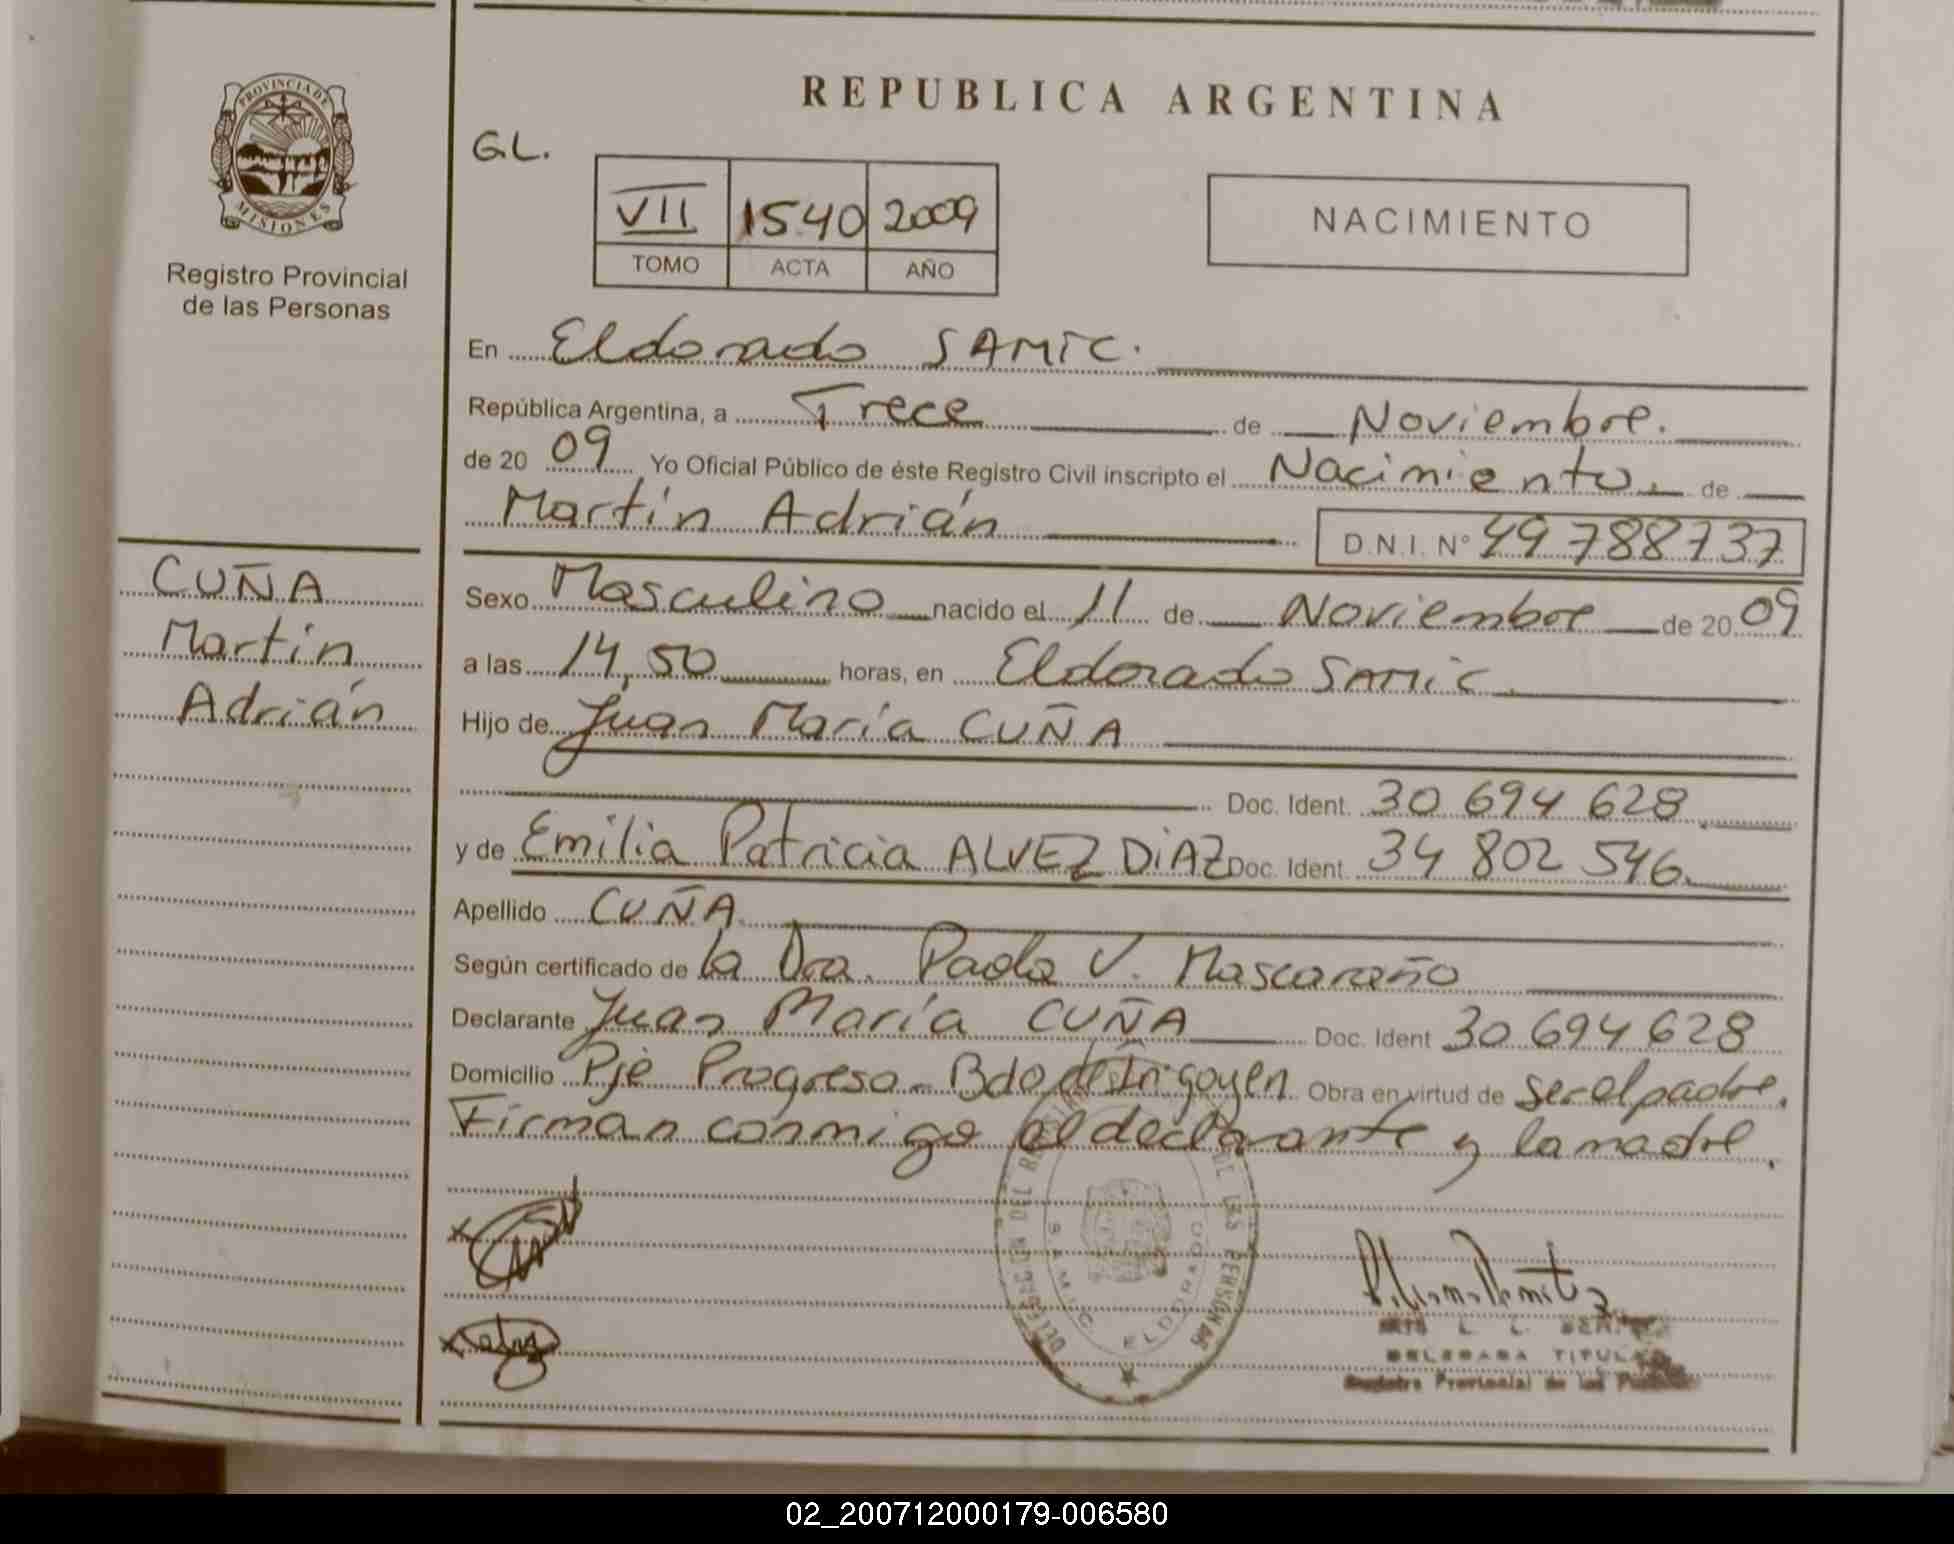 REPUBLICA ARGENTINA
PROVINCIA DE
MISIONES
Registro Provincial
de las Personas
G.L.
VII 1540 2009
TOMO ACTA AÑO
NACIMIENTO
En Eldorado SAMIC.
República Argentina, a Trece de Noviembre.
de 20 09 Yo Oficial Público de éste Registro Civil inscripto el Nacimiento. de
Martín Adrián D.N.I. Nº 49 788 737
CUÑA
Martín
Adrián
Sexo Masculino nacido el 11 de Noviembre de 20 09
a las 14,50 horas, en Eldorado SAMIC.
Hijo de Juan María CUÑA
Doc. Ident. 30 694 628
y de Emilia Patricia ALVEZ DIAZ Doc. Ident. 34 802 546
Apellido CUÑA
Según certificado de la Dra. Paola V. Mascaraño
Declarante Juan María CUÑA Doc. Ident 30 694 628
Domicilio Pje Progreso - Bdo de Irigoyen Obra en virtud de ser el padre.
Firman conmigo el declarante y la madre.
DELEGACION DEL REGISTRO DE LAS PERSONAS
SAMIC ELDORADO
DELEGADA TITULAR
Registro Provincial de las
02_200712000179-006580